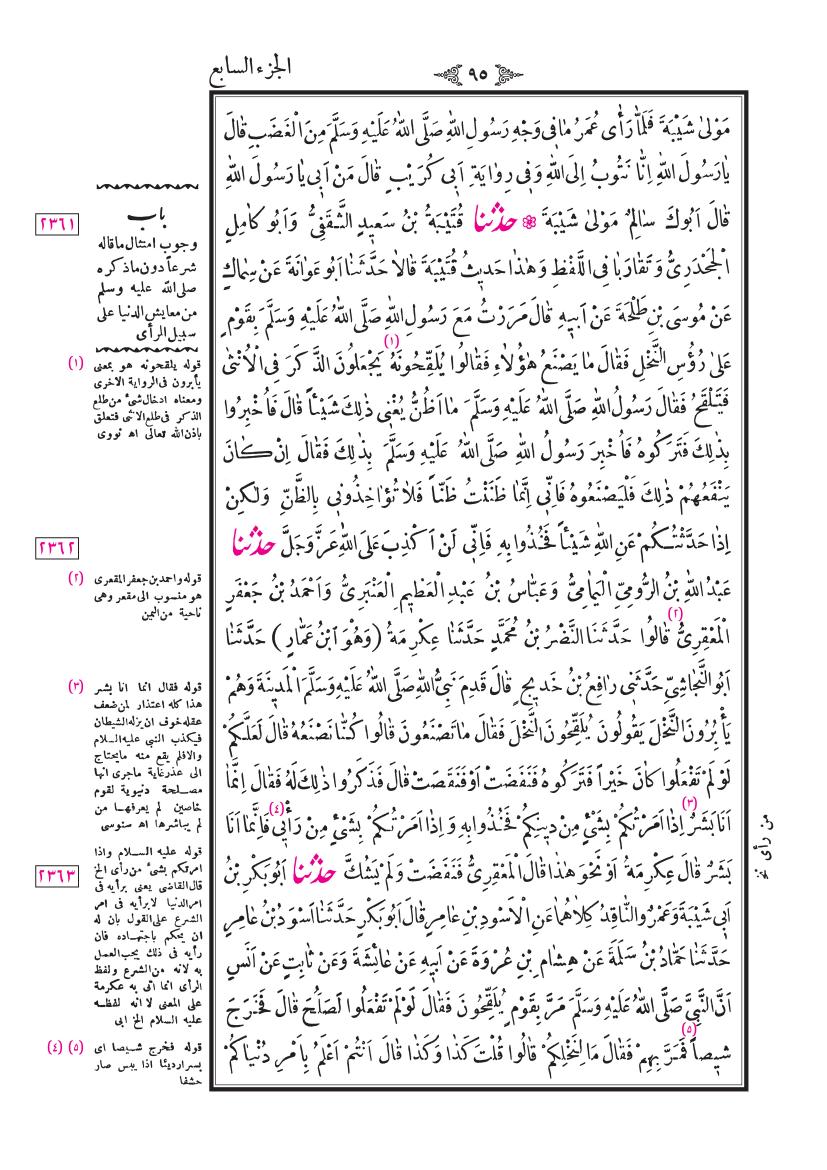 ٩٥
الجزء السابع
مَوْلىٰ شَيْبَةَ فَلَمَّا رَأٰى عُمَرُ مٰا فِى وَجْهِ رَسُولِ اللهِ صَلَّى اللهُ عَلَيْهِ وَسَلَّمَ مِنَ الْغَضَبِ قٰالَ
يٰا رَسُولَ اللهِ اِنَّا نَتُوبُ اِلَى اللهِ وَفِى رِوٰايَةِ اَبِى كُرَيْبٍ قٰالَ مَنْ اَبِى يٰا رَسُولَ اللهِ
قٰالَ اَبُوكَ سٰالِمٌ مَوْلىٰ شَيْبَةَ ۞ حَدَّثَنٰا قُتَيْبَةُ بْنُ سَعِيدٍ الثَّقَفِىُّ وَاَبُو كٰامِلٍ
الْجَحْدَرِىُّ وَتَقٰارَبٰا فِى اللَّفْظِ وَهٰذٰا حَدِيثُ قُتَيْبَةَ قٰالاٰ حَدَّثَنٰا اَبُو عَوٰانَةَ عَنْ سِمٰاكٍ
عَنْ مُوسَى بْنِ طَلْحَةَ عَنْ اَبِيهِ قٰالَ مَرَرْتُ مَعَ رَسُولِ اللهِ صَلَّى اللهُ عَلَيْهِ وَسَلَّمَ بِقَوْمٍ
عَلىٰ رُؤُسِ النَّخْلِ فَقٰالَ مٰا يَصْنَعُ هٰؤُلاٰءِ فَقٰالُوا يُلَقِّحُونَهُ (١) يَجْعَلُونَ الذَّكَرَ فِى الْاُنْثىٰ
فَيَتَلْقَحُ فَقٰالَ رَسُولُ اللهِ صَلَّى اللهُ عَلَيْهِ وَسَلَّمَ مٰا اَظُنُّ يُغْنِى ذٰلِكَ شَيْئاً قٰالَ فَاُخْبِرُوا
بِذٰلِكَ فَتَرَكُوهُ فَاُخْبِرَ رَسُولُ اللهِ صَلَّى اللهُ عَلَيْهِ وَسَلَّمَ بِذٰلِكَ فَقٰالَ اِنْ كٰانَ
يَنْفَعُهُمْ ذٰلِكَ فَلْيَصْنَعُوهُ فَاِنِّى اِنَّمٰا ظَنَنْتُ ظَنّاً فَلاٰ تُؤٰاخِذُونِى بِالظَّنِّ وَلٰكِنْ
اِذٰا حَدَّثْتُكُمْ عَنِ اللهِ شَيْئاً فَخُذُوا بِهِ فَاِنِّى لَنْ اَكْذِبَ عَلَى اللهِ عَزَّ وَجَلَّ حَدَّثَنٰا
عَبْدُ اللهِ بْنُ الرُّومِىِّ الْيَمٰامِىُّ وَعَبّٰاسُ بْنُ عَبْدِ الْعَظِيمِ الْعَنْبَرِىُّ وَاَحْمَدُ بْنُ جَعْفَرٍ
الْمَعْقِرِىُّ (٢) قٰالُوا حَدَّثَنَا النَّضْرُ بْنُ مُحَمَّدٍ حَدَّثَنٰا عِكْرِمَةُ (وَهُوَ ابْنُ عَمّٰارٍ) حَدَّثَنٰا
اَبُو النَّجٰاشِىِّ حَدَّثَنِى رٰافِعُ بْنُ خَدِيجٍ قٰالَ قَدِمَ نَبِىُّ اللهِ صَلَّى اللهُ عَلَيْهِ وَسَلَّمَ الْمَدِينَةَ وَهُمْ
يَأْبُرُونَ النَّخْلَ يَقُولُونَ يُلَقِّحُونَ النَّخْلَ فَقٰالَ مٰا تَصْنَعُونَ قٰالُوا كُنَّا نَصْنَعُهُ قٰالَ لَعَلَّكُمْ
لَوْ لَمْ تَفْعَلُوا كٰانَ خَيْراً فَتَرَكُوهُ فَنَفَضَتْ اَوْ فَنَقَصَتْ قٰالَ فَذَكَرُوا ذٰلِكَ لَهُ فَقٰالَ اِنَّمٰا
اَنَا بَشَرٌ (٣) اِذٰا اَمَرْتُكُمْ بِشَىْءٍ مِنْ دِينِكُمْ فَخُذُوا بِهِ وَاِذٰا اَمَرْتُكُمْ (٤) بِشَىْءٍ مِنْ رَأْىٍ فَاِنَّمٰا اَنَا
بَشَرٌ قٰالَ عِكْرِمَةُ اَوْ نَحْوَ هٰذٰا قٰالَ الْمَعْقِرِىُّ فَنَفَضَتْ وَلَمْ يَشُكَّ حَدَّثَنٰا اَبُو بَكْرِ بْنُ
اَبِى شَيْبَةَ وَعَمْرٌو النّٰاقِدُ كِلاٰهُمٰا عَنِ الْاَسْوَدِ بْنِ عٰامِرٍ قٰالَ اَبُو بَكْرٍ حَدَّثَنٰا اَسْوَدُ بْنُ عٰامِرٍ
حَدَّثَنٰا حَمّٰادُ بْنُ سَلَمَةَ عَنْ هِشٰامِ بْنِ عُرْوَةَ عَنْ اَبِيهِ عَنْ عٰائِشَةَ وَعَنْ ثٰابِتٍ عَنْ اَنَسٍ
اَنَّ النَّبِىَّ صَلَّى اللهُ عَلَيْهِ وَسَلَّمَ مَرَّ بِقَوْمٍ يُلَقِّحُونَ فَقٰالَ لَوْ لَمْ تَفْعَلُوا لَصَلُحَ قٰالَ فَخَرَجَ
شِيصاً (٥) فَمَرَّ بِهِمْ فَقٰالَ مٰا لِنَخْلِكُمْ قٰالُوا قُلْتَ كَذٰا وَكَذٰا قٰالَ اَنْتُمْ اَعْلَمُ بِاَمْرِ دُنْيٰاكُمْ
من رأى نخ
٢٣٦١
باب
وجوب امتثال ماقاله
شرعاً دون ماذكره
صلى الله عليه وسلم
من معايش الدنيا على
سبيل الرأى
(١) قوله يلقحونه هو بمعنى
يأبرون فى الرواية الاخرى
ومعناه ادخال شئ من طلع
الذكر فى طلع الانثى فتعلق
باذن الله تعالى اه نووى
٢٣٦٢
(٢) قوله واحمد بن جعفر المقعرى
هو منسوب الى مقعر وهى
ناحية من اليمن
(٣) قوله فقال انما انا بشر
هذا كله اعتذار لمن ضعف
عقله خوف ان يزله الشيطان
فيكذب النبي عليه السلام
والا فلم يقع منه مايحتاج
الى عذر غاية ماجرى انها
مصلحة دنيوية لقوم
خاصين لم يعرفها من
لم يباشرها اه سنوسى
٢٣٦٣
قوله عليه السلام واذا
امرتكم بشئ من رأى الخ
قال القاضى يعنى برأيه فى
امر الدنيا لا برأيه فى امر
الشرع على القول بان له
ان يحكم باجتهاده فان
رأيه فى ذلك يجب العمل
به لانه من الشرع ولفظ
الرأى انما اتى به عكرمة
على المعنى لا انه لفظه
عليه السلام الخ ابى
(٤) (٥) قوله فخرج شيصا اى
بسرا رديئا اذا يبس صار
حشفا